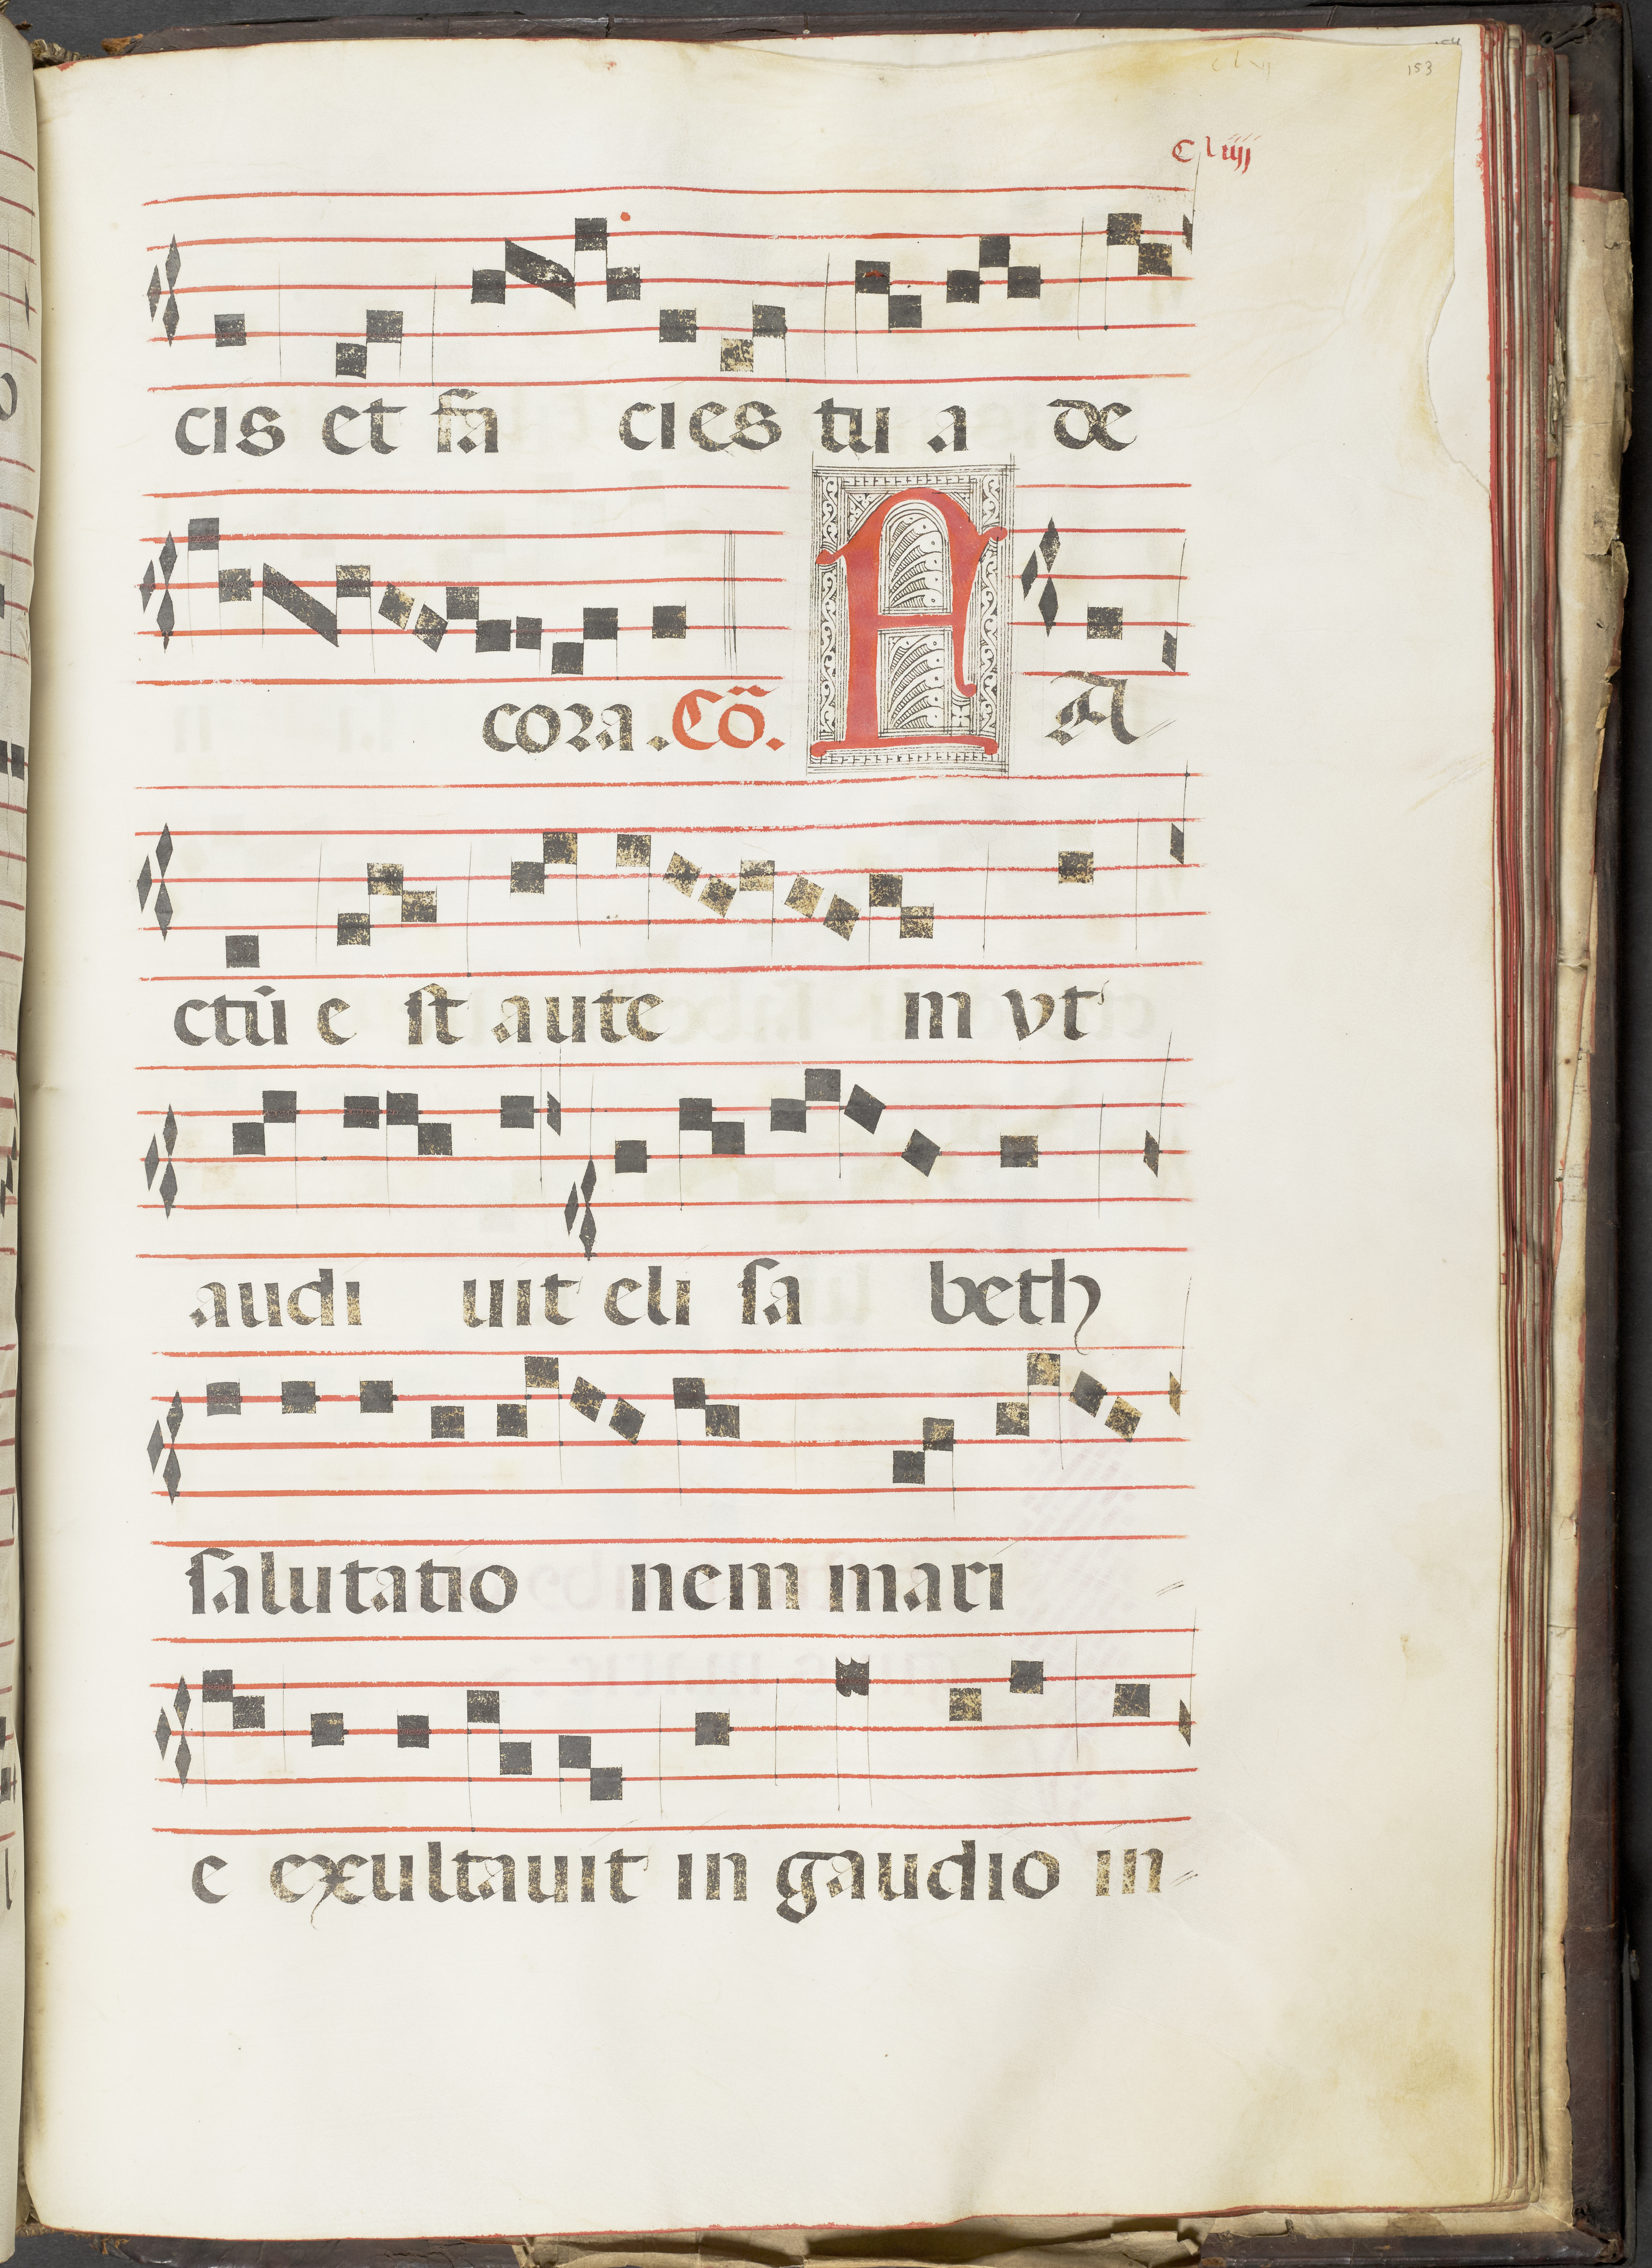 153
Cliiij
cis et fa cies tu a de
cora. Cō. F A
ctū e st aute m vt
audi uit eli sa beth
salutatio nem mari
e exultauit in gaudio in